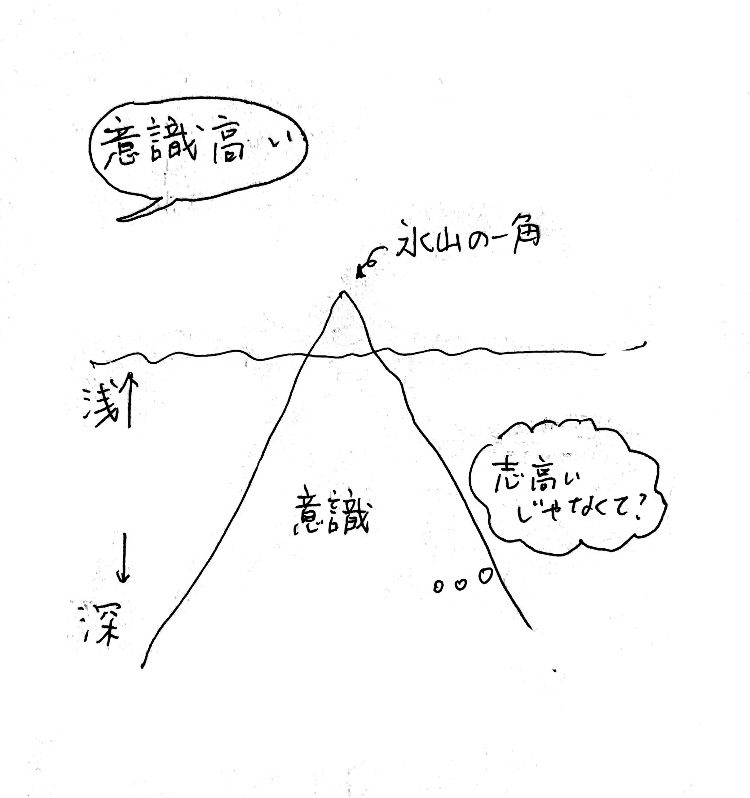 意識高い
氷山の一角
浅
意識
志高い
じゃなくて?
深